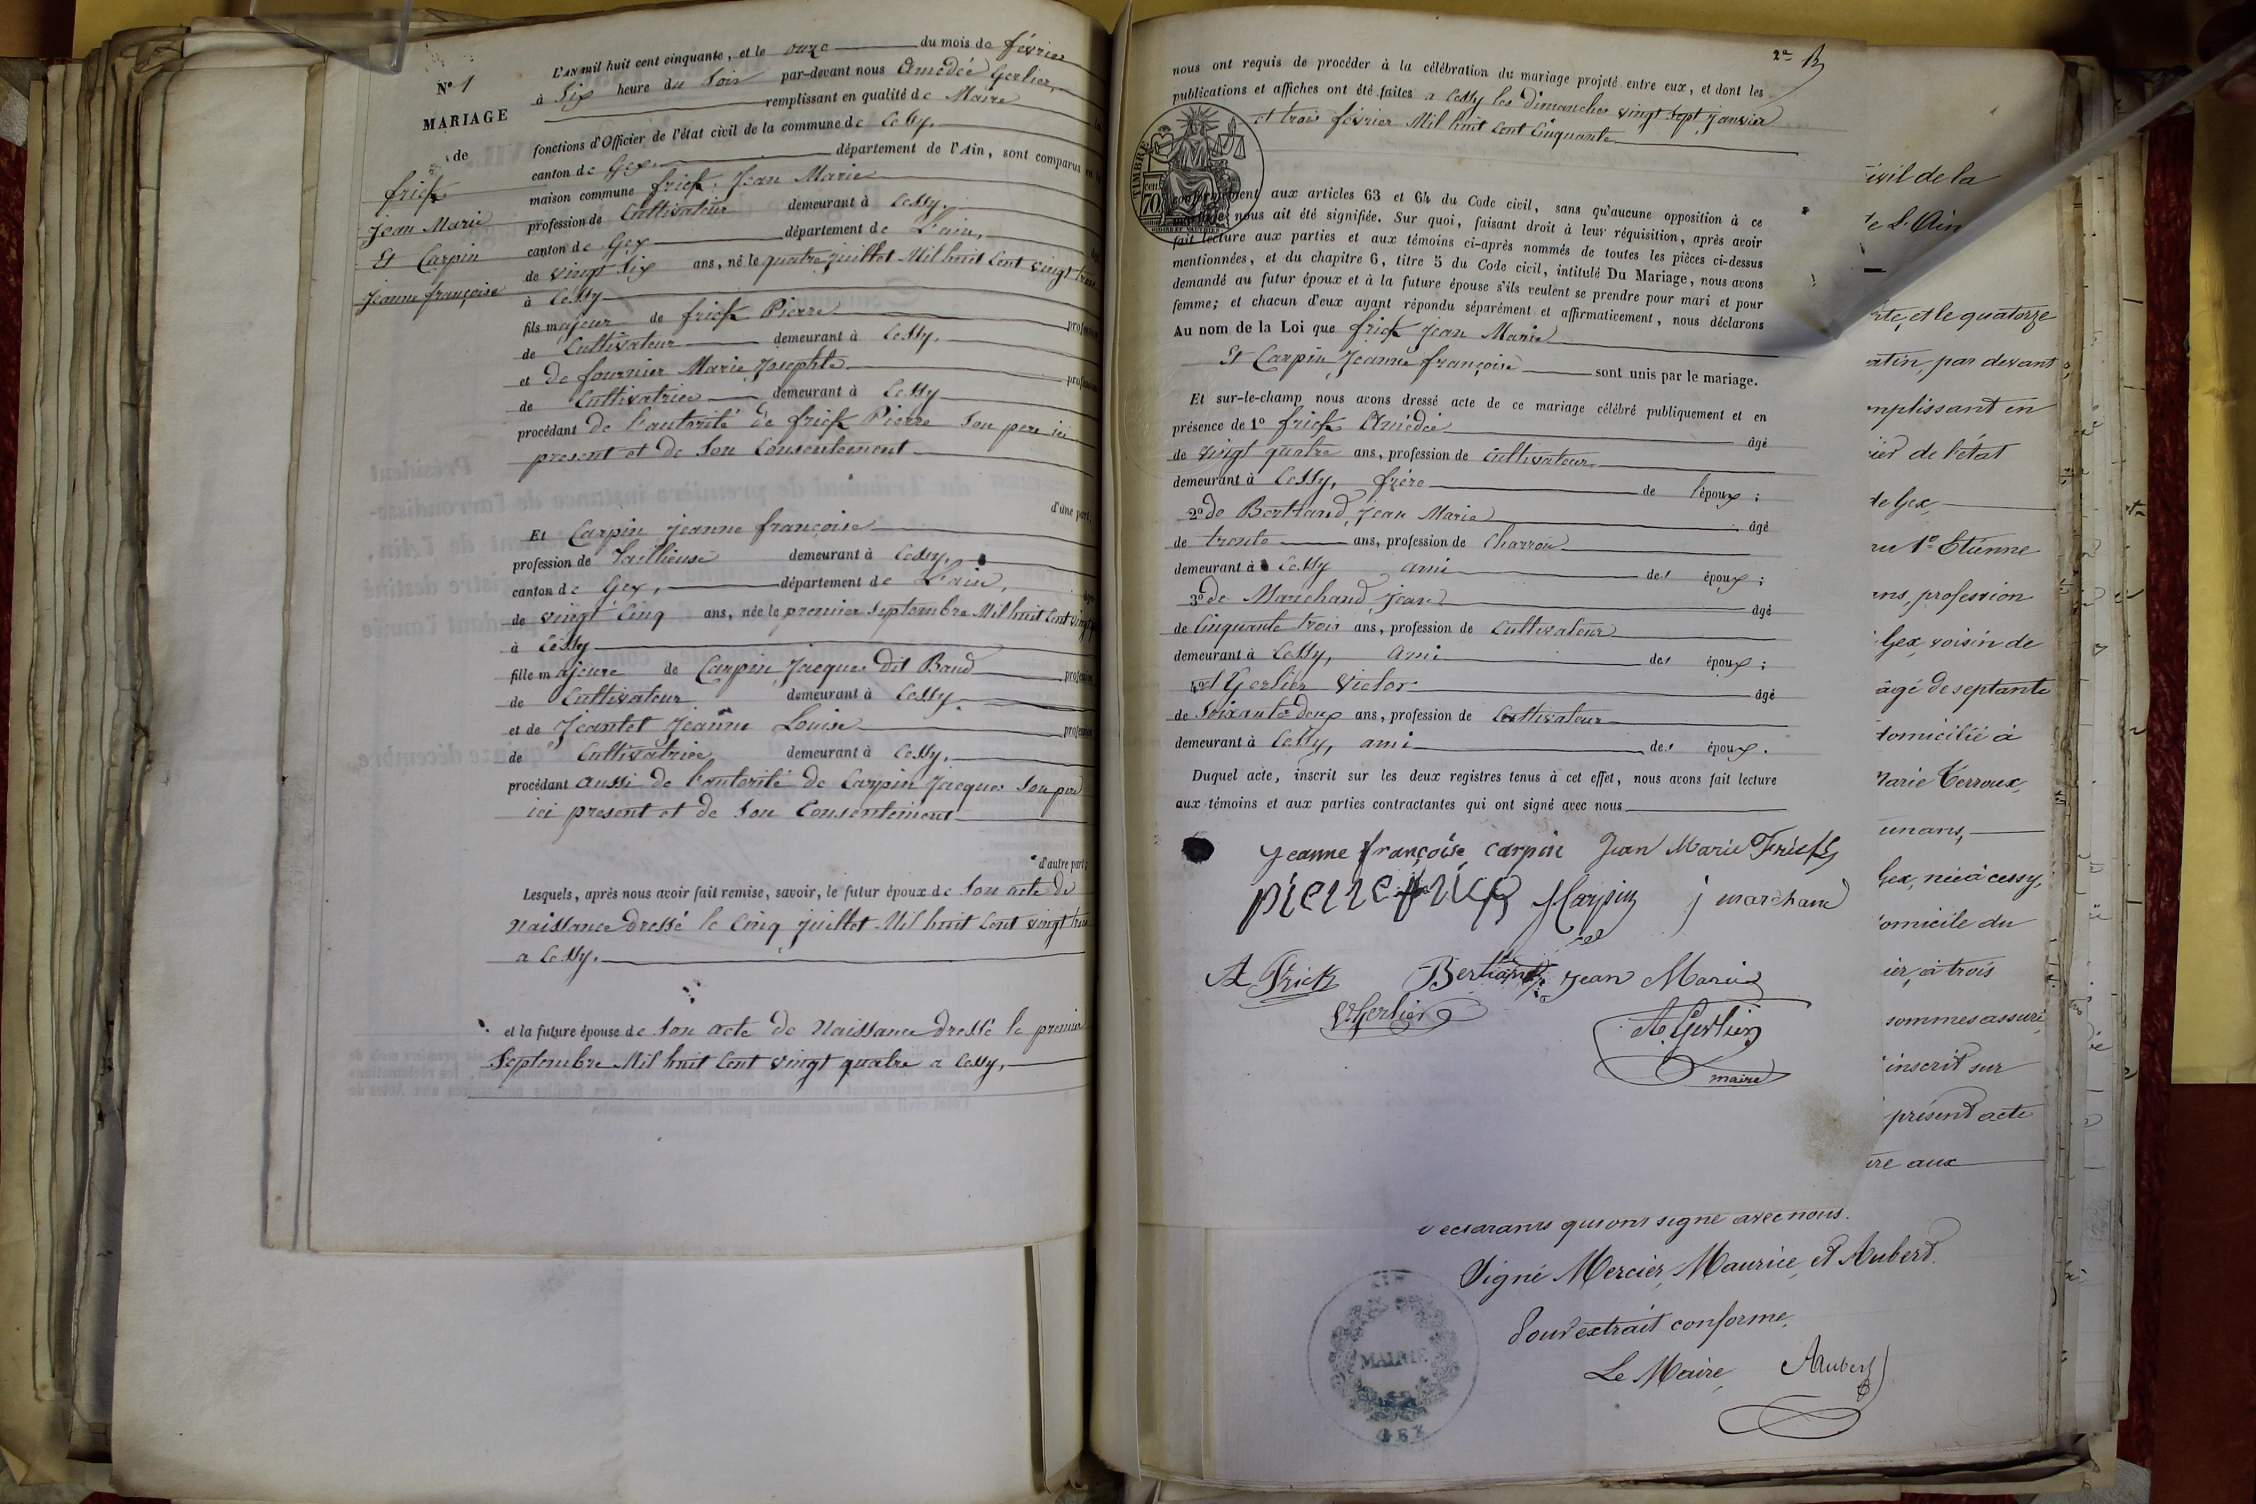 N° 1
MARIAGE
de
frick
Jean Marie
Et Carpin
Jeanne françoise
L'AN mil huit cent cinquante, et le onze du mois de février
à Six heure du Soir par-devant nous Amédée Gerlier,
remplissant en qualité de Maire
fonctions d'Officier de l'état civil de la commune de Cessy.
canton de Gex. département de l'Ain, sont comparus en la
maison commune frick, Jean Marie
profession de Cultivateur demeurant à Cessy.
canton de Gex département de L'ain,
de vingt Six ans, né le quatre juillet Mil huit Cent vingt trois
à Cessy
fils majeur de frick Pierre profession
de Cultivateur demeurant à Cessy.
et de fournier Marie Josephte profession
de Cultivatrice demeurant à Cessy
procédant de l'autorité de frick Pierre Son pere ici
present et de Son Consentement
d'une part.
Et Carpin Jeanne françoise
profession de Tailleuse demeurant à Cessy.
canton de Gex, département de L'ain,
de vingt Cinq ans, née le premier Septembre Mil huit Cent vingt
à Cessy
fille majeure de Carpin Jacques dit Baud profession
de Cultivateur demeurant à Cessy.
et de Jeantet Jeanne Louise profession
de Cultivatrice demeurant à Cessy.
procédant aussi de l'autorité de Carpin Jacques Son pere
ici present et de Son Consentement
d'autre part;
Lesquels, après nous avoir fait remise, savoir, le futur époux de Son acte de
Naissance Dressé le Cinq juillet Mil huit Cent vingt trois
a Cessy.
et la future épouse de Son acte de Naissance dressé le premier
Septembre Mil huit Cent vingt quatre a Cessy,
nous ont requis de procéder à la célébration du mariage projeté entre eux, et dont les
publications et affiches ont été faites a Cessy les Dimanches vingt Sept janvier
et trois février Mil huit Cent Cinquante
TIMBRE
70
conformément aux articles 63 et 64 du Code civil, sans qu'aucune opposition à ce
mariage nous ait été signifiée. Sur quoi, faisant droit à leur réquisition, après avoir
fait lecture aux parties et aux témoins ci-après nommés de toutes les pièces ci-dessus
mentionnées, et du chapitre 6, titre 5 du Code civil, intitulé Du Mariage, nous avons
demandé au futur époux et à la future épouse s'ils veulent se prendre pour mari et pour
femme; et chacun d'eux ayant répondu séparément et affirmativement, nous déclarons
Au nom de la Loi que frick Jean Marie
Et Carpin Jeanne françoise sont unis par le mariage.
Et sur-le-champ nous avons dressé acte de ce mariage célébré publiquement et en
présence de 1° frick Amédée âgé
de vingt quatre ans, profession de Cultivateur
demeurant à Cessy, frère de l'époux;
2° de Bertrand, Jean Marie âgé
de trente ans, profession de Charron
demeurant à Cessy ami des époux;
3° de Marchand, jean âgé
de Cinquante trois ans, profession de Cultivateur
demeurant à Cessy, ami des époux;
4° d Gerlier Victor âgé
de Soixante deux ans, profession de Cultivateur
demeurant à Cessy, ami des époux.
Duquel acte, inscrit sur les deux registres tenus à cet effet, nous avons fait lecture
aux témoins et aux parties contractantes qui ont signé avec nous
Jeanne françoise carpin Jean Marie Frick
pierre frick JCarpin j marchand
A Frick Bertrand Jean Marie
V Gerlier
A. Gerlier
maire
ivil de la
te L'Ain
nte, et le quatorze
atin, par devant
mplissant en
ier de l'état
de Gex,
1° Etienne
ans, profession
Gex, voisin de
âgé de septante
domicilié à
Marie Terroux,
un ans,
Gex, née à cessy,
omicile du
ier, à trois
sommes assuré
inscrit sur
présent acte
ure aux
declarants qui ont signé avec nous.
Signé Mercier, Maurice, et Aubert.
Pour extrait conforme,
Le Maire, Aubert
MAIRIE
GEX